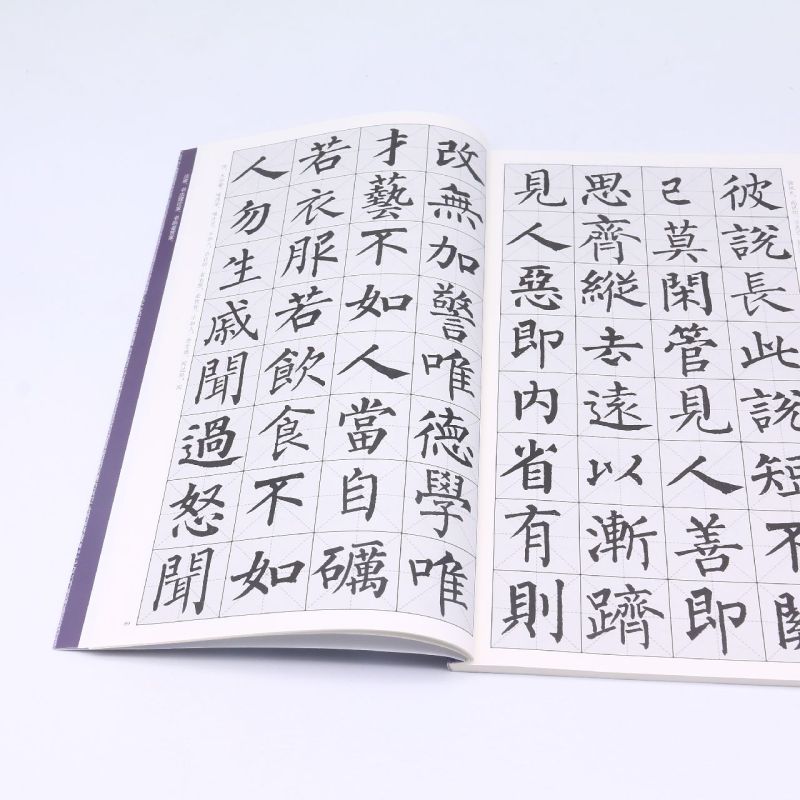 彼說長此說短不關
己莫閑管見人善即
思齊縱去遠以漸躋
見人惡即內省有則
改無加警唯德學唯
才藝不如人當自礪
若衣服若飲食不如
人勿生戚聞過怒聞